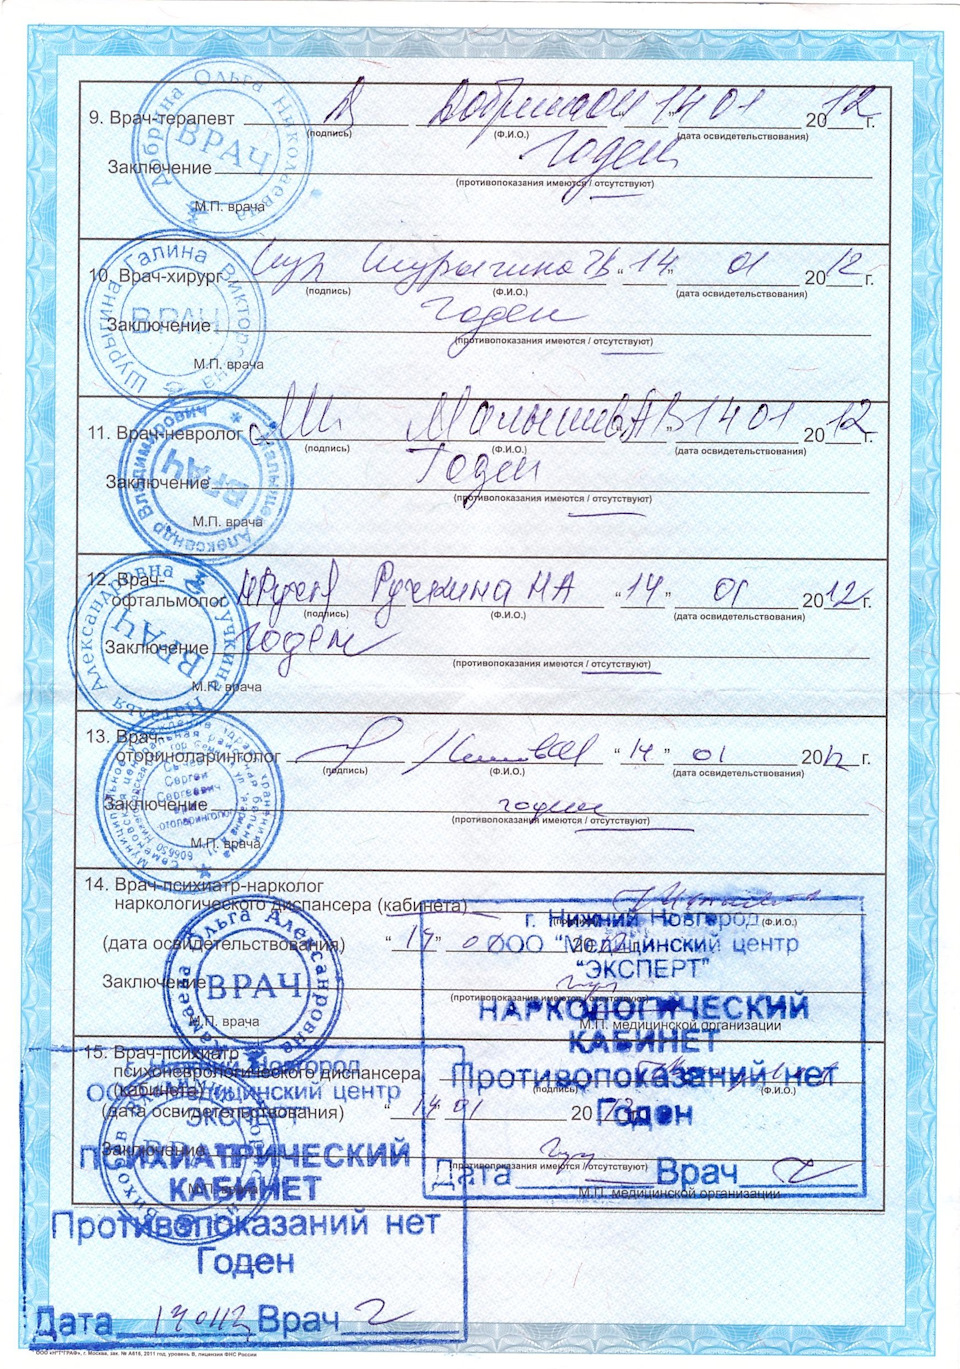 9. Врач-терапевт 14 01 2012 г.
(подпись) (Ф.И.О.) (дата освидетельствования)
Заключение Годен
(противопоказания имеются / отсутствуют)
М.П. врача
Добрина Ольга Николаевна
ВРАЧ
10. Врач-хирург Шур Шурыгина ГВ “14” 01 2012 г.
(подпись) (Ф.И.О.) (дата освидетельствования)
Заключение Годен
(противопоказания имеются / отсутствуют)
М.П. врача
Шурыгина Галина Викторовна
ВРАЧ
11. Врач-невролог Малышев АВ 14 01 2012 г.
(подпись) (Ф.И.О.) (дата освидетельствования)
Заключение Годен
(противопоказания имеются / отсутствуют)
М.П. врача
Малышев Александр Владимирович
ВРАЧ
12. Врач-
офтальмолог Ручкина НА “14” 01 2012 г.
(подпись) (Ф.И.О.) (дата освидетельствования)
Заключение Годен
(противопоказания имеются / отсутствуют)
М.П. врача
Ручкина Наталья Александровна
ВРАЧ
13. Врач-
оториноларинголог “14” 01 2012 г.
(подпись) (Ф.И.О.) (дата освидетельствования)
Заключение годен
(противопоказания имеются / отсутствуют)
М.П. врача
Сергей
Сергеевич
14. Врач-психиатр-нарколог
наркологического диспансера (кабинета)
(Ф.И.О.)
(дата освидетельствования) “14” 0 20
Заключение
(противопоказания имеются / отсутствуют)
М.П. врача
М.П. медицинской организации
Ольга Александровна
ВРАЧ
г. Нижний Новгород
ООО "Медицинский центр
"ЭКСПЕРТ"
НАРКОЛОГИЧЕСКИЙ
КАБИНЕТ
Противопоказаний нет
Годен
Дата Врач
15. Врач-психиатр
психоневрологического диспансера
(кабинета)
(подпись) (Ф.И.О.)
(дата освидетельствования) “14 01 20
Заключение
(противопоказания имеются / отсутствуют)
М.П. врача
М.П. медицинской организации
ВРАЧ
Нижний Новгород
ООО "Медицинский центр
"ЭКСПЕРТ"
ПСИХИАТРИЧЕСКИЙ
КАБИНЕТ
Противопоказаний нет
Годен
Дата Врач
ООО «Н"Т"ГРАФ», г. Москва, зак. № А816, 2011 год, уровень В, лицензия ФНС России